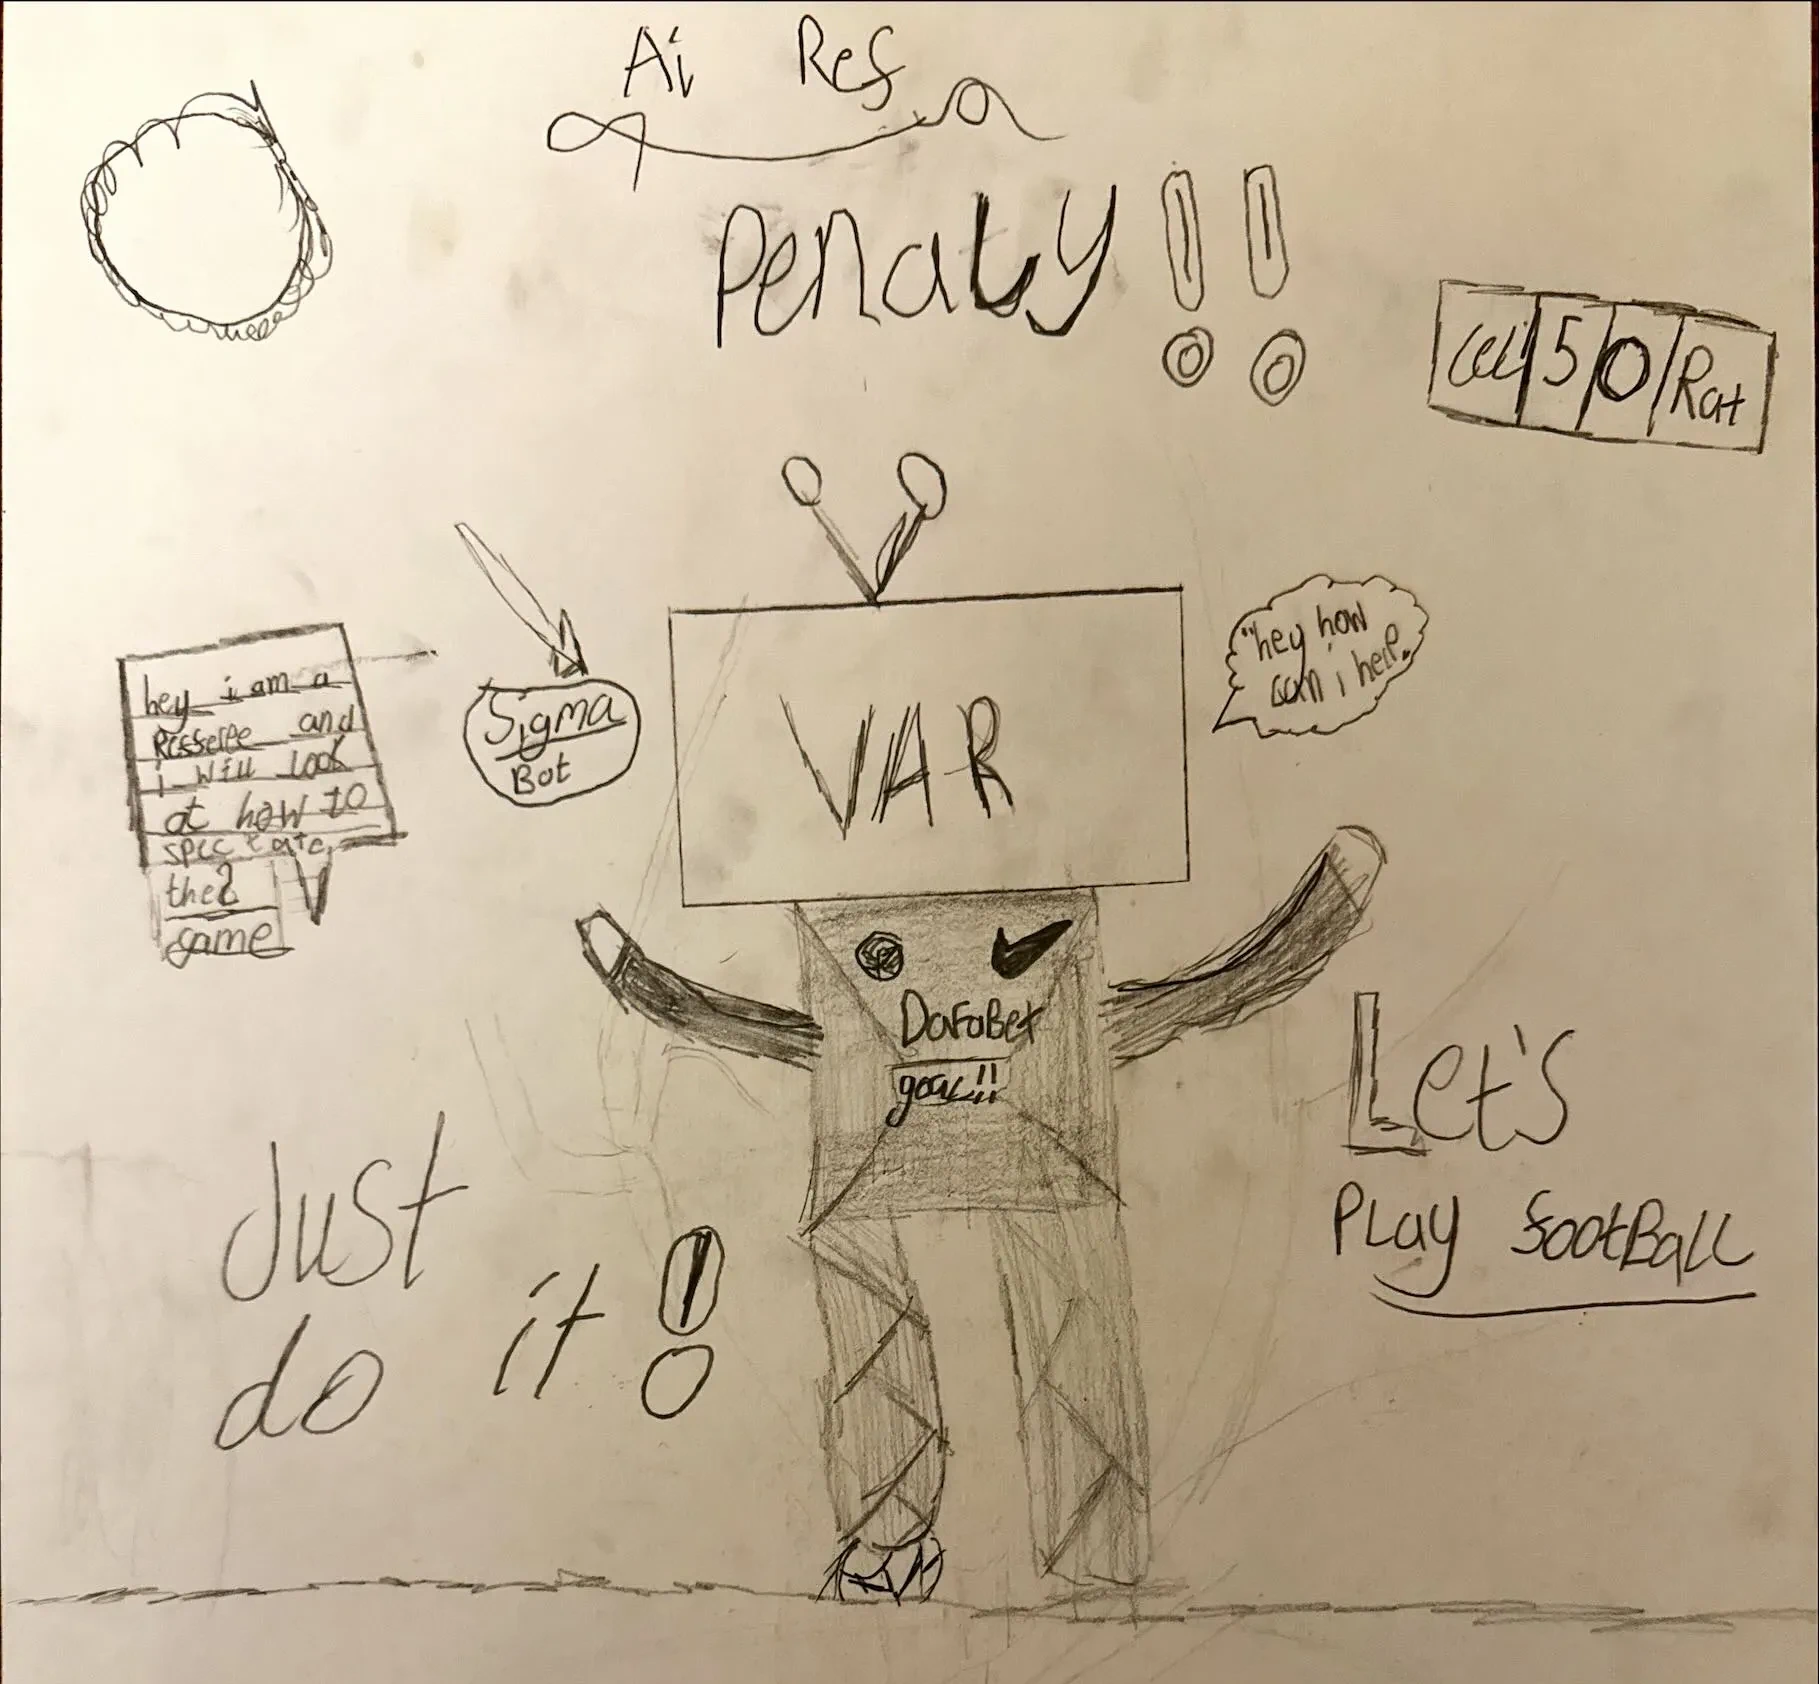 Ai Ref
Penaty!!
Cel 5 0 Rat
hey i am a
Reseree and
i will look
at how to
spectate
the
game
Sigma
Bot
VAR
"hey how
can i help.
DafaBet
goal!!
Just
do it!
Let's
Play football